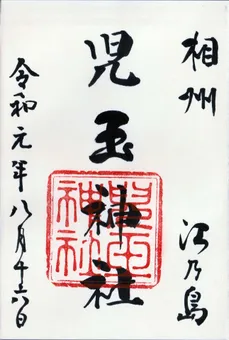 相州
江乃島
児玉神社
児玉神社
令和元年八月十六日